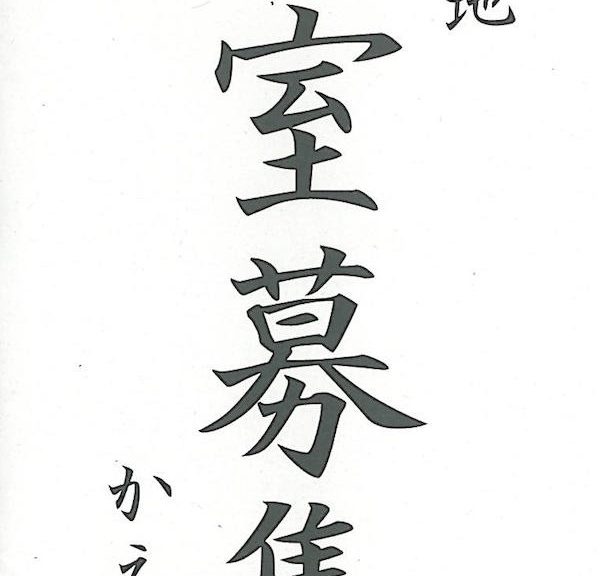 地
室募集
かえ